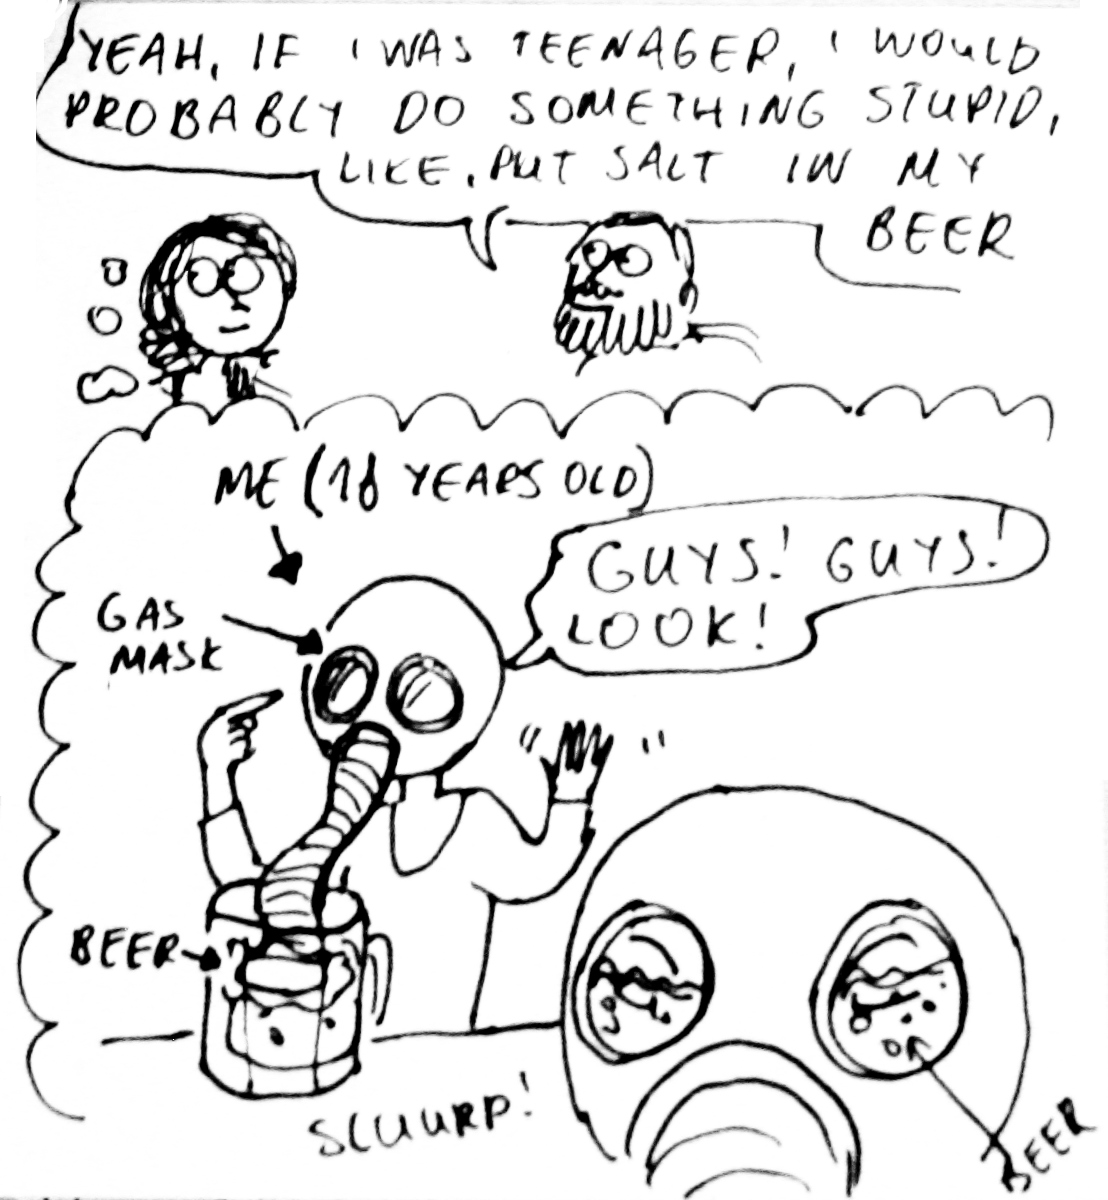 YEAH, IF I WAS TEENAGER, I WOULD
PROBABLY DO SOMETHING STUPID,
LIKE, PUT SALT IN MY
BEER
ME (18 YEARS OLD)
GUYS! GUYS!
LOOK!
GAS
MASK
BEER
SLUURP!
BEER